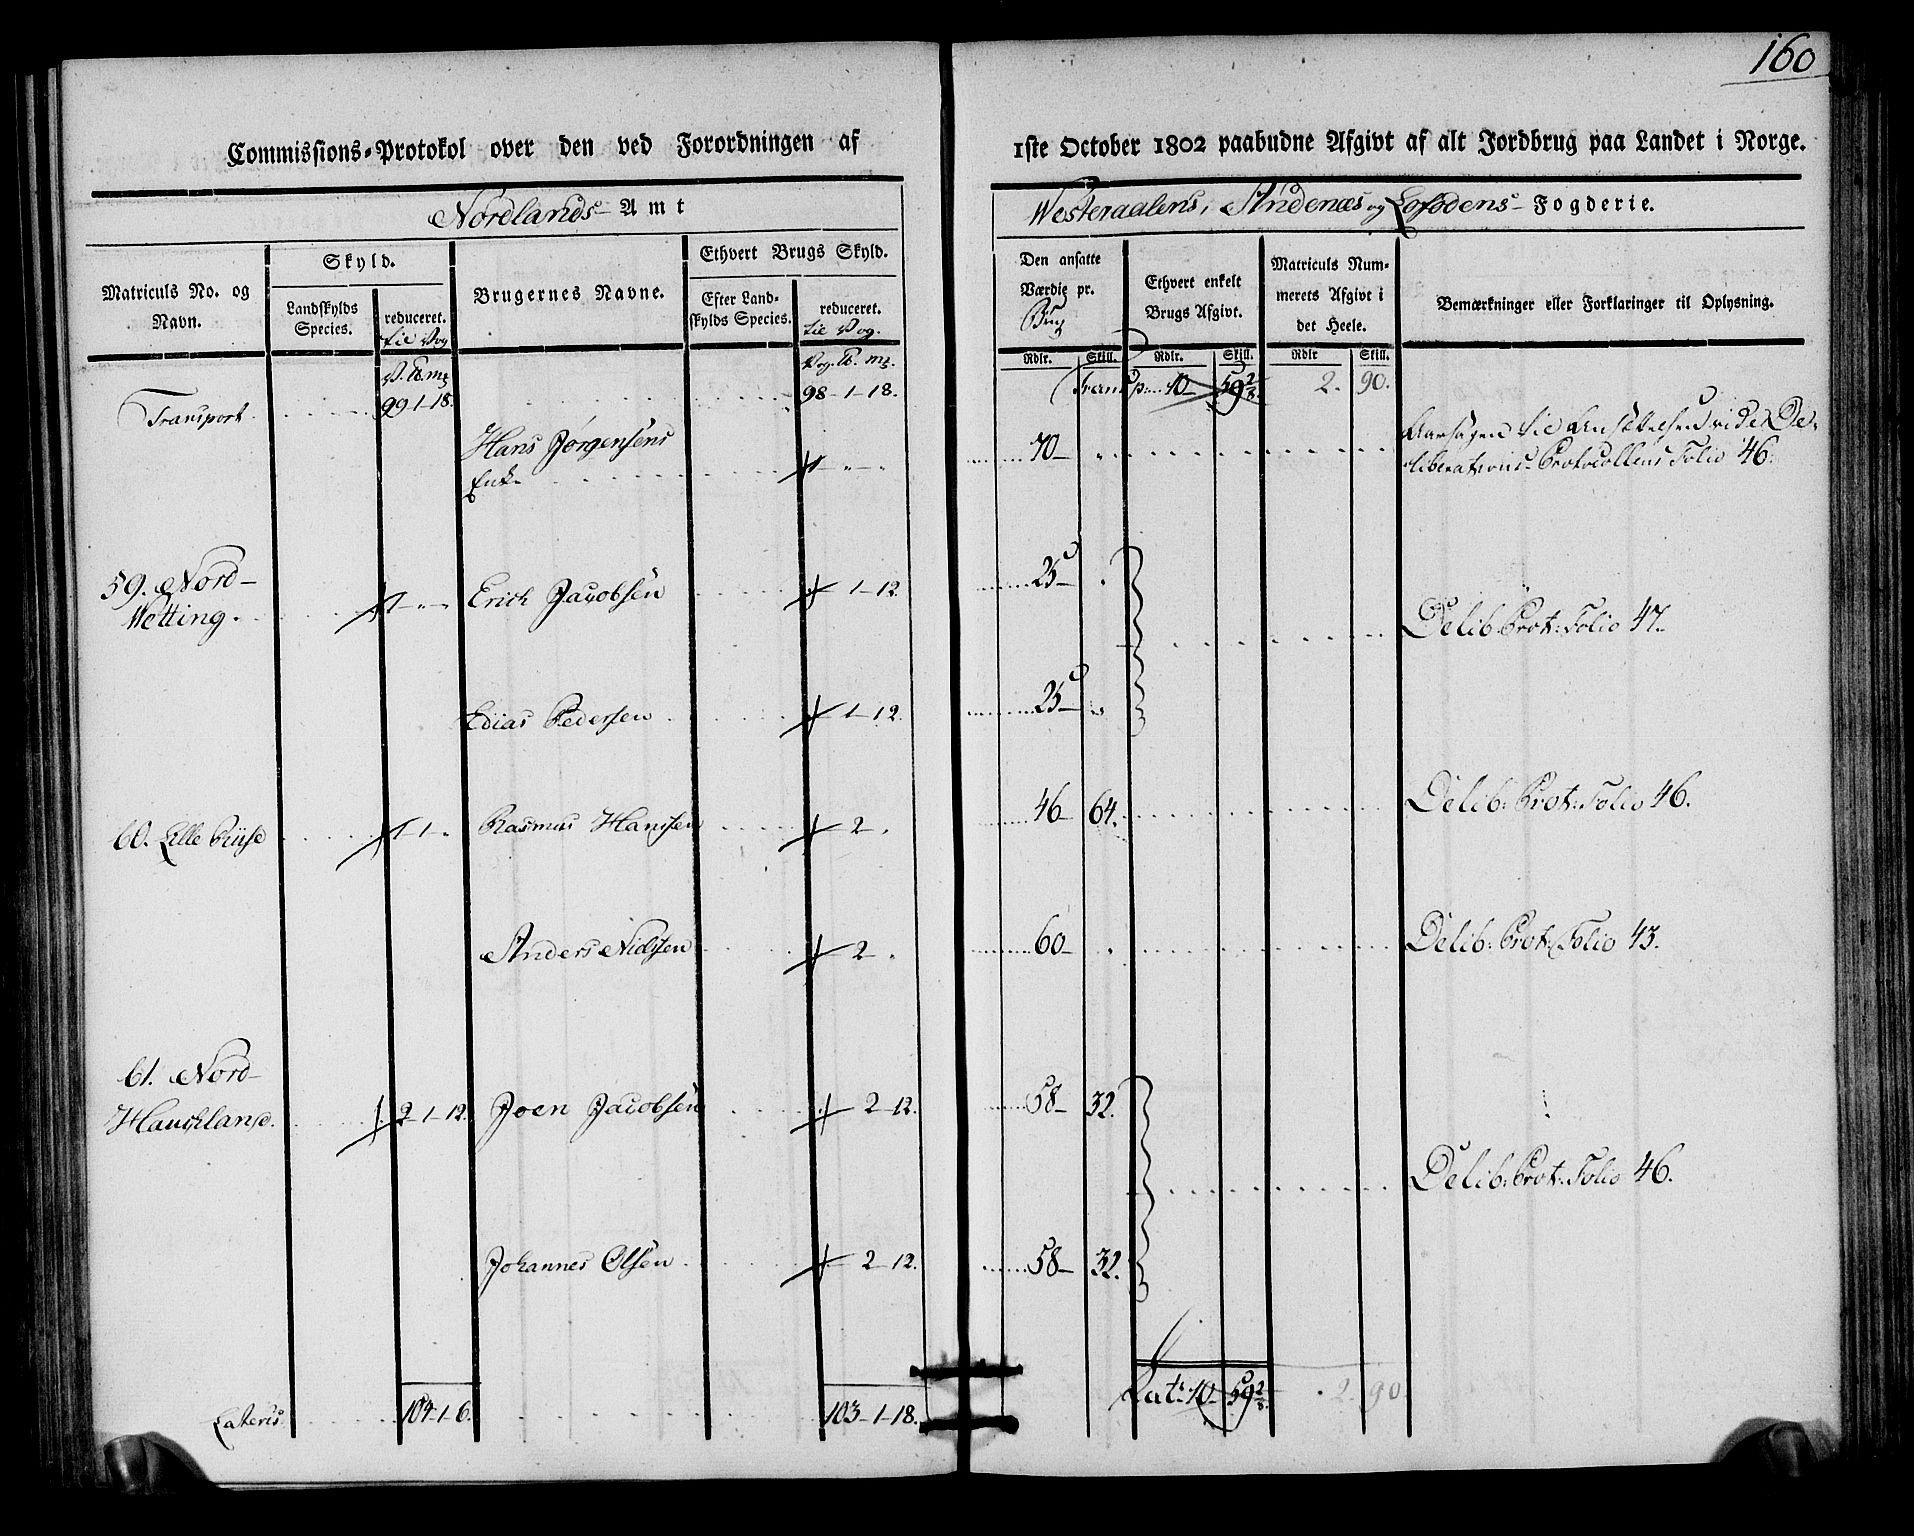 160
Commissions-Protokol over den ved Forordningen af 1ste October 1802 paabudne Afgivt af alt Jordbrug paa Landet i Norge.
Nordlands Amt
Westeraalens, Andenæs og Lofodens Fogderie.
Matriculs No. og Navn.
Skyld.
Landskylds Species.
reduceret. til Vog
Brugernes Navne.
Ethvert Brugs Skyld.
Efter Landskylds Species.
reduceret. til Vog.
Den ansatte Værdie pr. Brug
Ethvert enkelt Brugs Afgivt.
Matriculs Nummerets Afgivt i det Heele.
Bemærkninger eller Forklaringer til Oplysning.
Rdlr. Skill. Rdlr. Skill. Rdlr Skill.
Transport. 99-1-18. 98-1-18. Transp: 10- 59 2/8. 2. 90.
Hans Jørgensens Enke 1 - " - " 70- Aarsagen til Ansættelsen vide Deliberations-Protocollens Folio 46.
59. Nord-Vetting. 1 - " - " Erich Jacobsen 1-12. 25-
Delib: Prot: Folio 47.
Edias Pedersen 1-12. 25-
60. Lille Riise 1-1 Rasmus Hanssen 2. 46- 64. Delib: Prot: Folio 46.
Anders Nielsen 2. 60- Delib: Prot: Folio 43.
61. Nord-Hauchland. 2-1-12. Joen Jacobsen 2-12. 58- 32.
Delib: Prot: Folio 46.
Johannes Olsen 2-12. 58- 32.
Lateris 104-1-6. 103-1-18. Lat: 10- 59 2/8. 2. 90